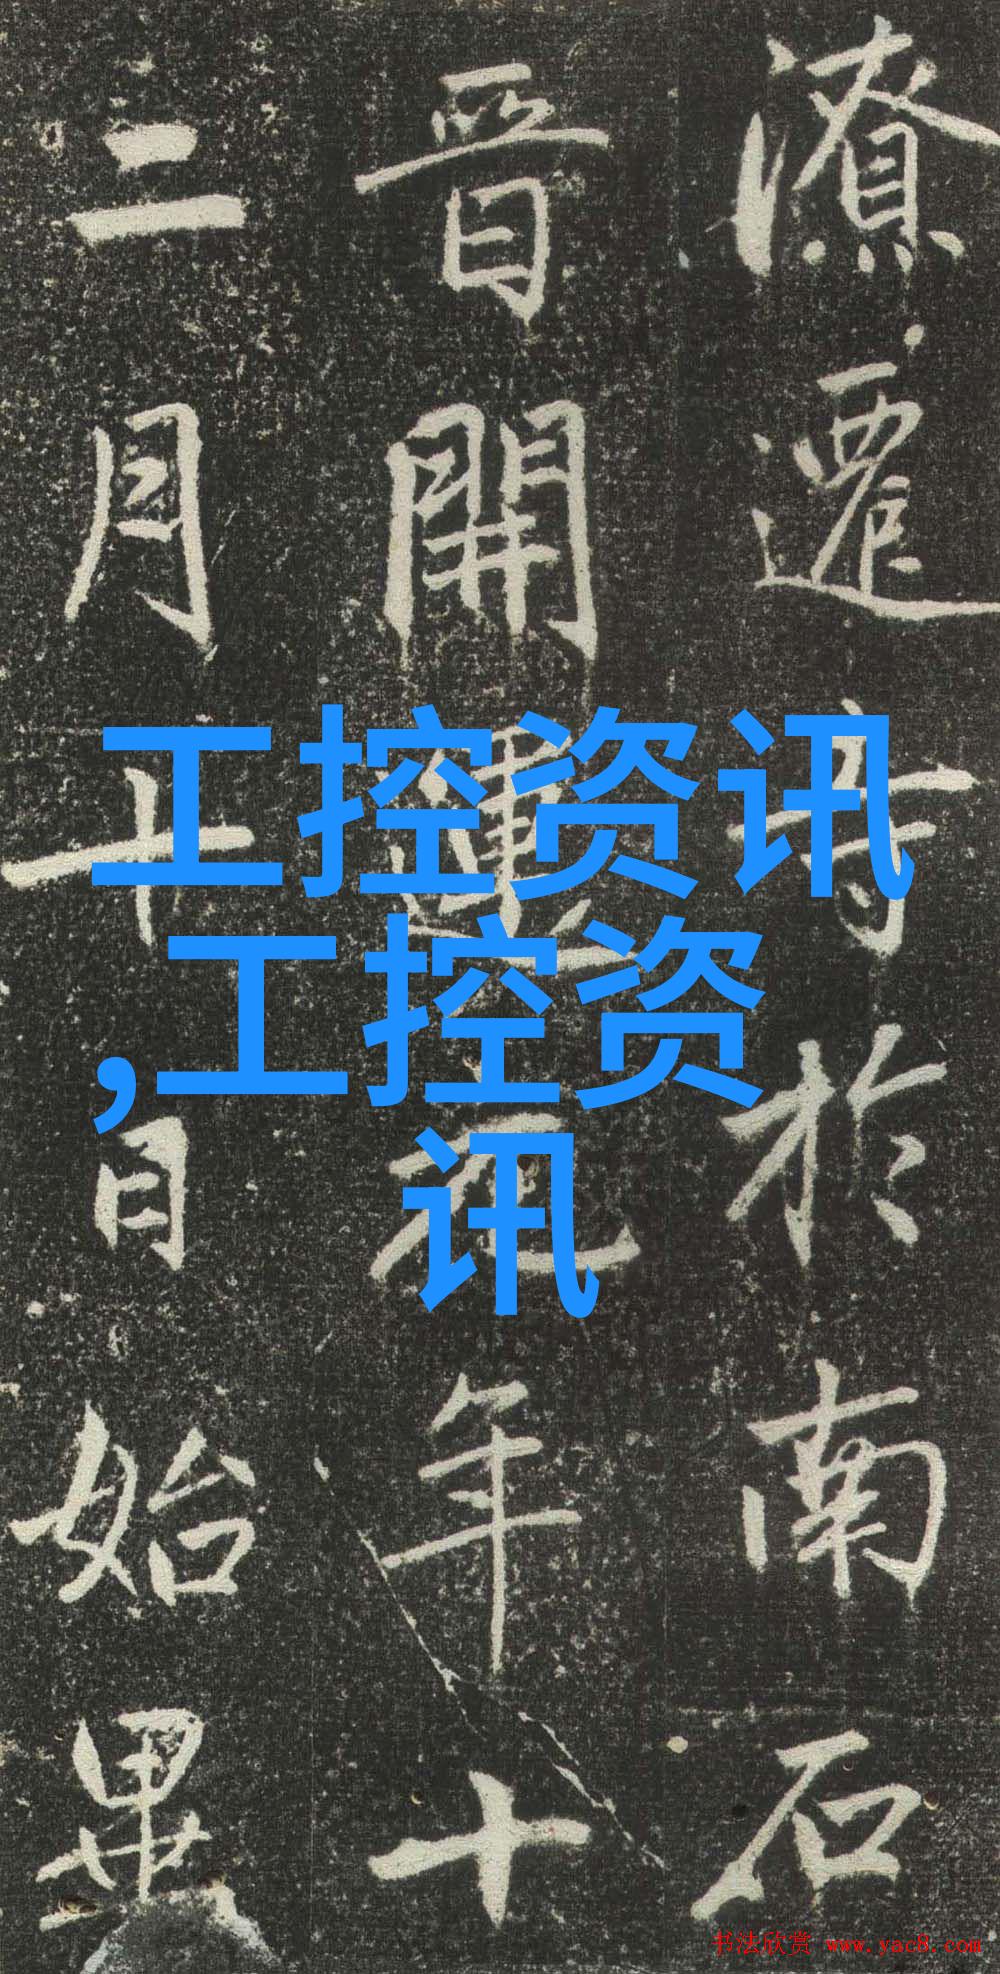 潦遷於南石
晉開運元年十
二月十日始畢
工控资讯
,工控资
讯
书法欣赏 www.yac8.com